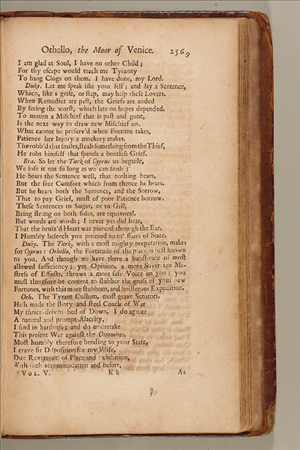 Othello, the Moor of Venice. 2569
I am glad at Soul, I have no other Child;
For thy escape would teach me Tyranny
To hang Clogs on them. I have done, my Lord.
Duke. Let me speak like your self; and lay a Sentence,
Which, like a grise, or step, may help these Lovers.
When Remedies are past, the Griefs are ended
By seeing the worst, which late on hopes depended.
To mourn a Mischief that is past and gone,
Is the next way to draw new Mischief on.
What cannot be preserv'd when Fortune takes,
Patience her Injury a mockery makes.
The robb'd that smiles, steals something from the Thief,
He robs himself that spends a bootless Grief.
Bra. So let the Turk of Cyprus us beguile,
We lose it not so long as we can smile;
He bears the Sentence well, that nothing bears,
But the free Comfort which from thence he hears.
But he bears both the Sentence, and the Sorrow,
That to pay Grief, must of poor Patience borrow.
These Sentences to Sugar, or to Gall,
Being strong on both sides, are equivocal.
But words are words; I never yet did hear,
That the bruis'd Heart was pierced through the Ear.
I Humbly beseech you proceed to th' Affairs of State.
Duke. The Turk, with a most mighty preparation, makes
for Cyprus: Othello, the Fortitude of the place is best known
to you. And though we have there a Substitute of most
allowed sufficiency; yet Opinion, a more Sovereign Mi-
stress of Effects, throws a more safe Voice on you; you
must therefore be content to slubber the gloss of your new
Fortunes, with this more stubborn, and boisterous Expedition.
Oth. The Tyrant Custom, most grave Senators,
Hath made the flinty and steel Couch of War
My thrice-driven bed of Down. I do agnize
A natural and prompt Alacrity,
I find in hardness; and do undertake
This present War against the Ottomites,
Most humbly therefore bending to your State,
I crave fit Disposition for my Wife,
Due Reverence of Place and Exhibition,
With such accommodation and besort,
Vol. V. K k As